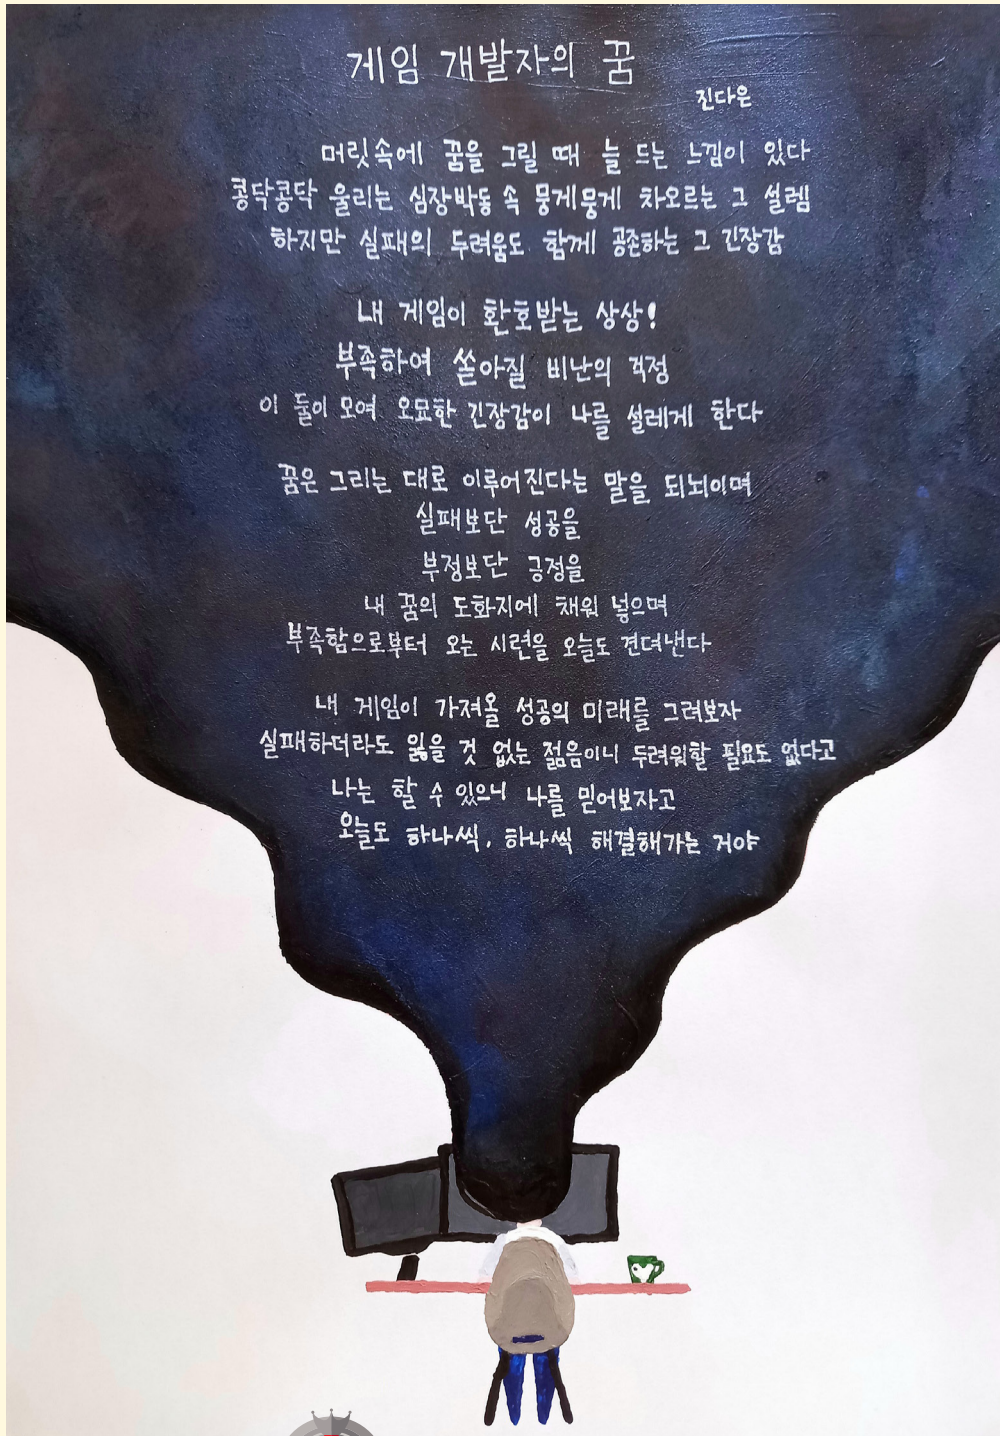 게임 개발자의 꿈
진다은
머릿속에 꿈을 그릴 때 늘 드는 느낌이 있다
콩닥콩닥 울리는 심장박동 속 뭉게뭉게 차오르는 그 설렘
하지만 실패의 두려움도 함께 공존하는 그 긴장감
내 게임이 환호받는 상상!
부족하여 쏟아질 비난의 걱정
이 둘이 모여 오묘한 긴장감이 나를 설레게 한다
꿈은 그리는 대로 이루어진다는 말을 되뇌이며
실패보단 성공을
부정보단 긍정을
내 꿈의 도화지에 채워 넣으며
부족함으로부터 오는 시련을 오늘도 견뎌낸다
내 게임이 가져올 성공의 미래를 그려보자
실패하더라도 잃을 것 없는 젊음이니 두려워할 필요도 없다고
나는 할 수 있으니 나를 믿어보자고
오늘도 하나씩, 하나씩 해결해가는 거야